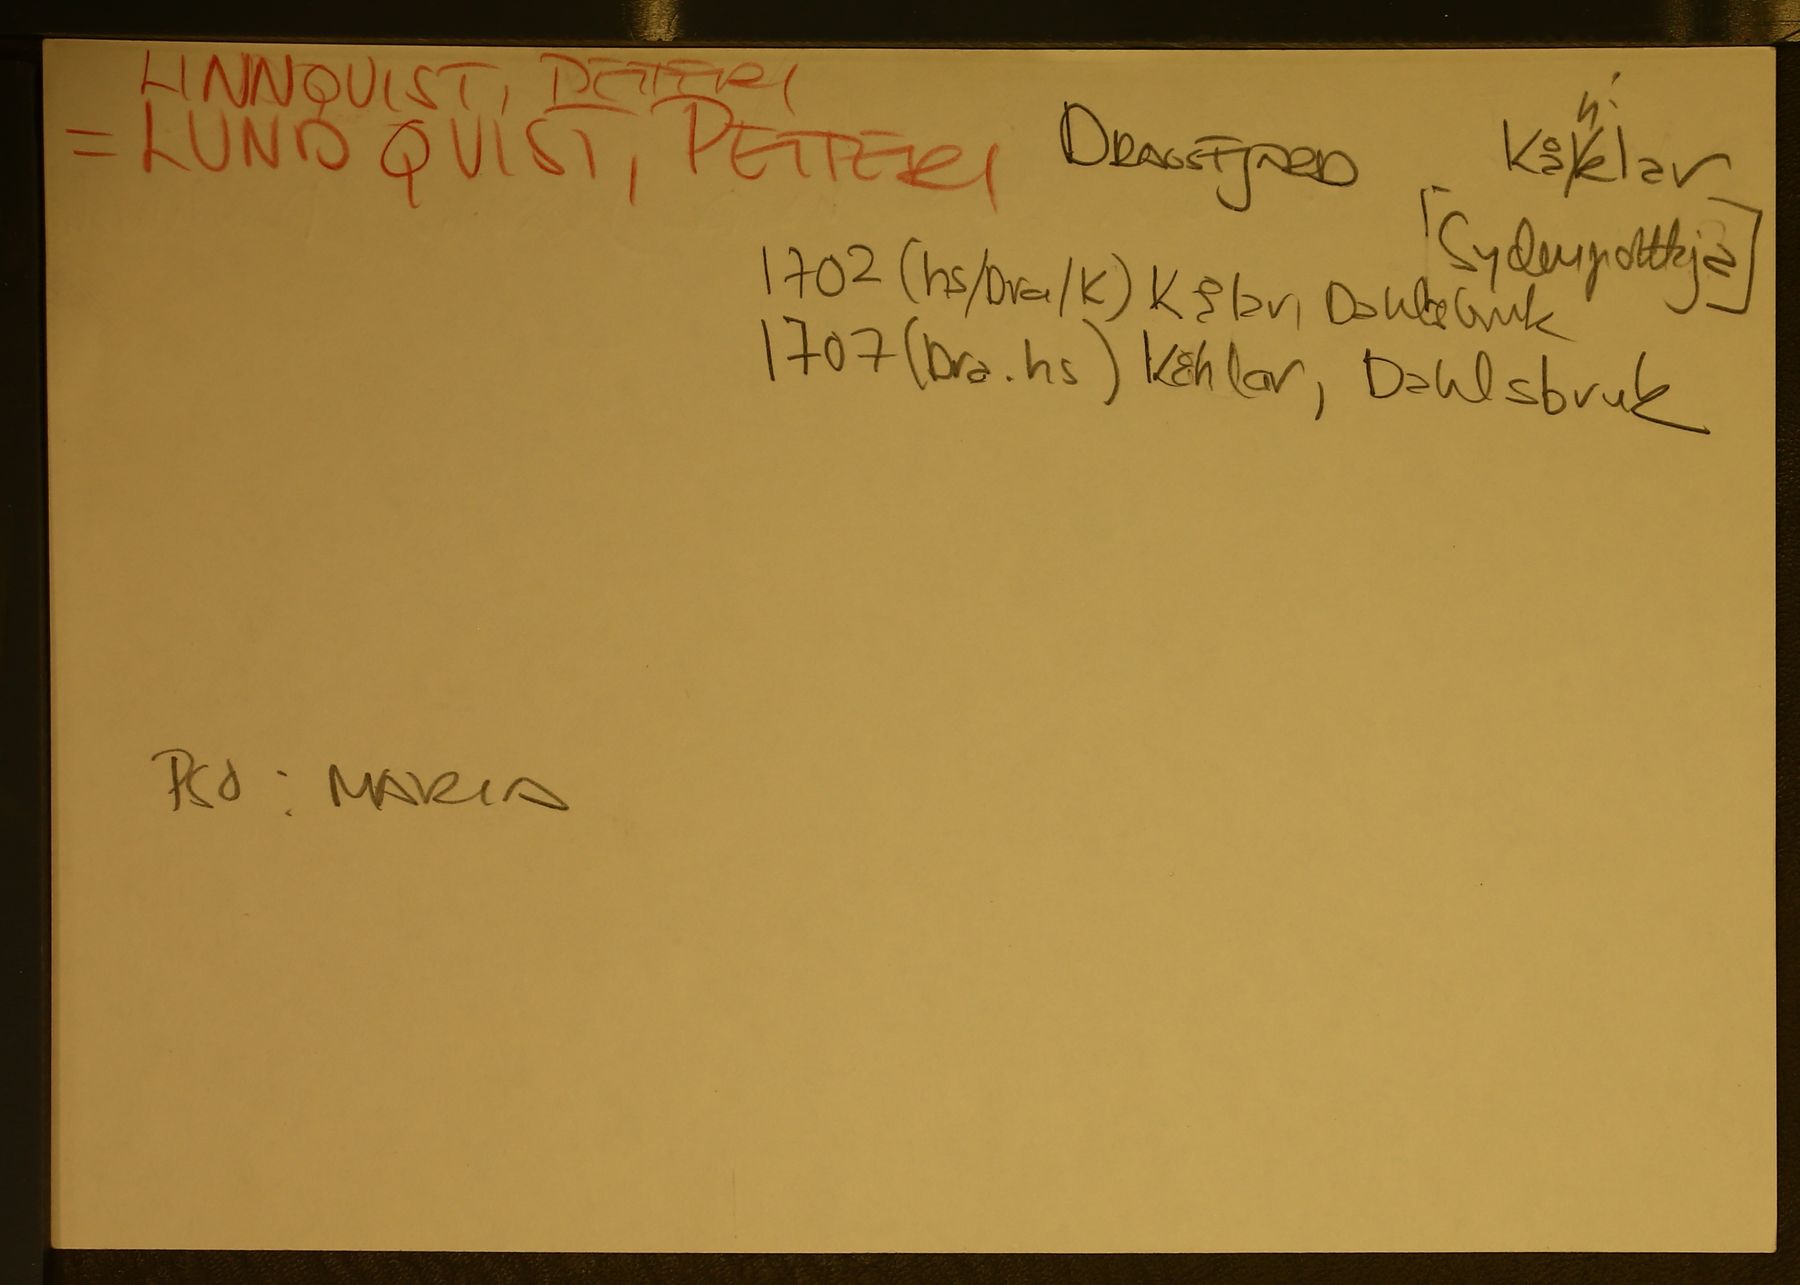 LINNQUIST, PETTERI
= LUNDQUIST, PETTERI DRAGSFJÄRD Kåklar
h:
[Sydänpolttaja]
1702 (hs/Dra/K) Kålar, Dahlsbruk
1707 (Dra.hs) Kåhlar, Dahlsbruk
PSO : MARIA